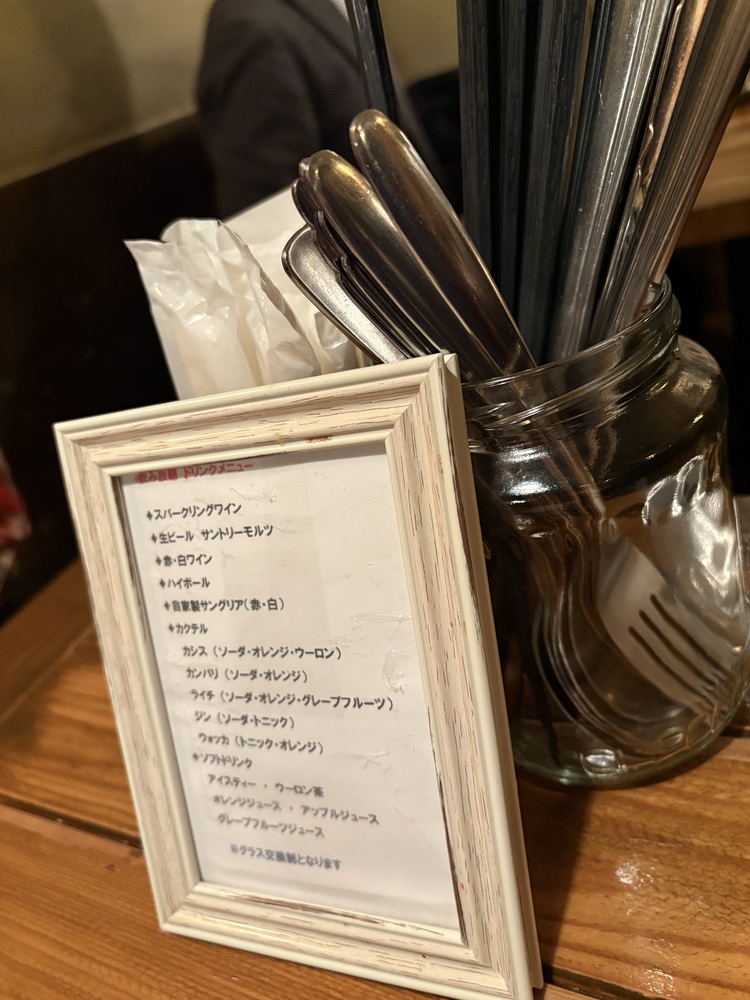 飲み放題 ドリンクメニュー
◆スパークリングワイン
◆生ビール サントリーモルツ
◆赤・白ワイン
◆ハイボール
◆自家製サングリア(赤・白)
◆カクテル
カシス (ソーダ・オレンジ・ウーロン)
カンパリ (ソーダ・オレンジ)
ライチ (ソーダ・オレンジ・グレープフルーツ)
ジン (ソーダ・トニック)
ウォッカ (トニック・オレンジ)
◆ソフトドリンク
アイスティー ・ ウーロン茶
オレンジジュース ・ アップルジュース
グレープフルーツジュース
※グラス交換制となります